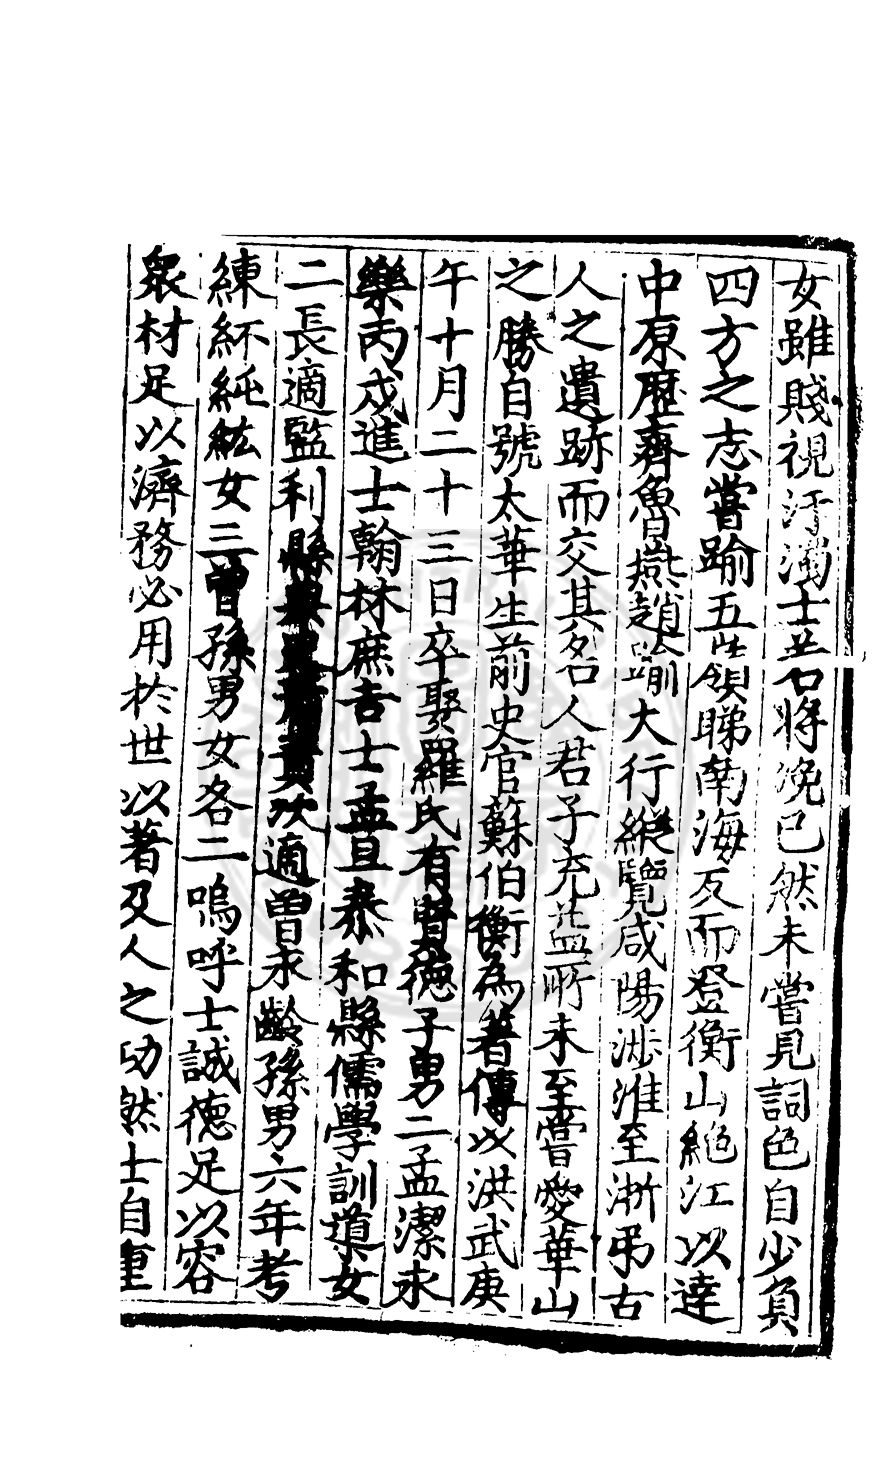 女雖賤視汙濁士若將浼已然未嘗見詞色自少負
四方之志嘗踰五嶺睇南海反而登衡山絕江以達
中原歷齊魯燕趙踰大行縱覽咸陽涉淮至淅弔古
人之遺跡而交其名人君子充益所未至嘗愛華山
之勝自號太華生前史官蘇伯衡為著傳以洪武庚
午十月二十三日卒娶羅氏有賢德子男二孟潔永
樂丙戍進士翰林庶吉士孟旦泰和縣儒學訓導女
二長適監利縣次適曾永齡孫男六年考
練紑純紘女三曾孫男女各二嗚呼士誠德足以容
衆材足以濟務必用於世以著及人之功然士自重